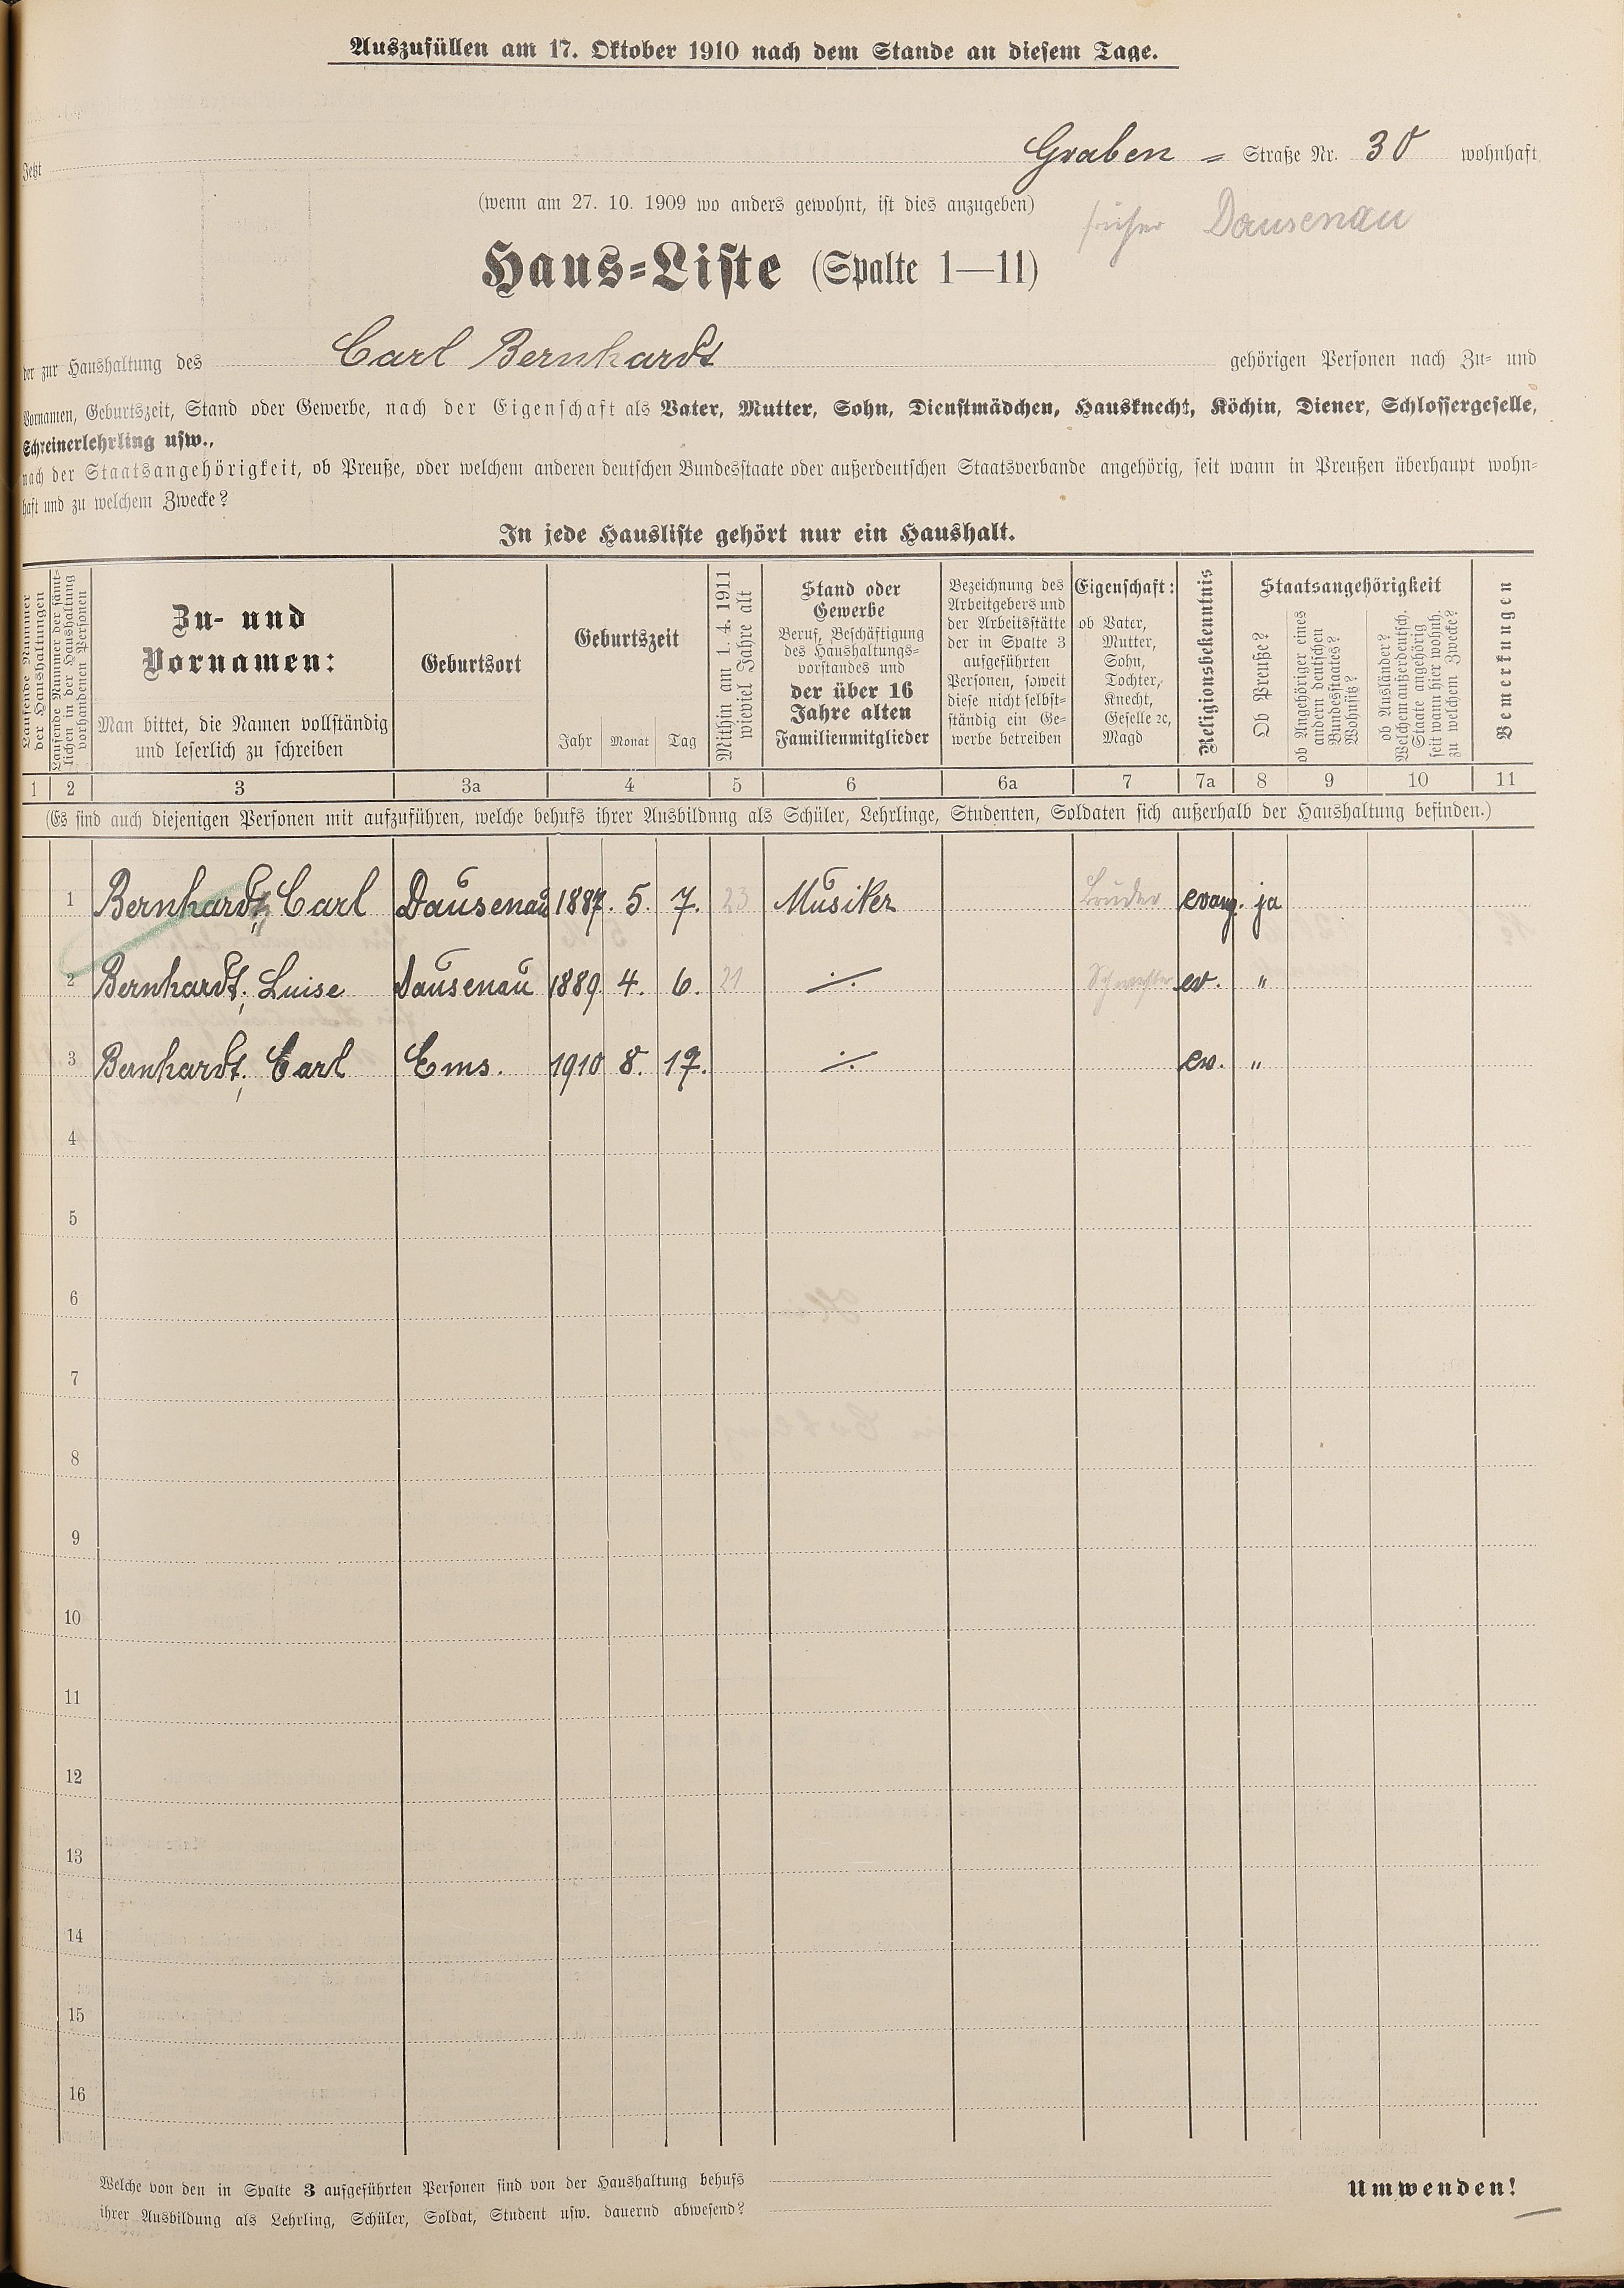 Auszufüllen am 17. Oktober 1910 nach dem Stande an diesem Tage.
Jetzt Graben = Straße Nr. 30 wohnhaft
(wenn am 27. 10. 1909 wo anders gewohnt, ist dies anzugeben) früher Dausenau
Haus=Liste (Spalte 1—11)
der zur Haushaltung des Carl Bernhardt gehörigen Personen nach Zu= und
Vornamen, Geburtszeit, Stand oder Gewerbe, nach der Eigenschaft als Vater, Mutter, Sohn, Dienstmädchen, Hausknecht, Köchin, Diener, Schlossergeselle,
Schreinerlehrling usw.,
nach der Staatsangehörigkeit, ob Preuße, oder welchem anderen deutschen Bundesstaate oder außerdeutschen Staatsverbande angehörig, seit wann in Preußen überhaupt wohn=
haft und zu welchem Zwecke?
In jede Hausliste gehört nur ein Haushalt.
Laufende Nummer
der Haushaltungen
Laufende Nummer der sämt=
lichen in der Haushaltung
vorhandenen Personen
Zu- und
Vornamen:
Man bittet, die Namen vollständig
und leserlich zu schreiben
Geburtsort
Geburtszeit
Jahr Monat Tag
Mithin am 1. 4. 1911
wieviel Jahre alt
Stand oder
Gewerbe
Beruf, Beschäftigung
des Haushaltungs=
vorstandes und
der über 16
Jahre alten
Familienmitglieder
Bezeichnung des
Arbeitgebers und
der Arbeitsstätte
der in Spalte 3
aufgeführten
Personen, soweit
diese nicht selbst=
ständig ein Ge=
werbe betreiben
Eigenschaft:
ob Vater,
Mutter,
Sohn,
Tochter,
Knecht,
Geselle ꝛc,
Magd
Religionsbekenntnis
Staatsangehörigkeit
Ob Preuße?
ob Angehöriger eines
andern deutschen
Bundesstaates?
Wohnsitz?
ob Ausländer?
Welchem außerdeutsch.
Staate angehörig
seit wann hier wohnh.
zu welchem Zwecke?
Bemerkungen
1 2 3 3a 4 5 6 6a 7 7a 8 9 10 11
(Es sind auch diejenigen Personen mit aufzuführen, welche behufs ihrer Ausbildung als Schüler, Lehrlinge, Studenten, Soldaten sich außerhalb der Haushaltung befinden.)
1 Bernhardt, Carl Dausenau 1887. 5. 7. 23 Musiker Bruder evang. ja
2 Bernhardt, Luise Dausenau 1889 4. 6. 21 ./. Schwester ev. "
3 Bernhardt, Carl Ems. 1910 8. 17. ./. ev. "
4
5
6
7
8
9
10
11
12
13
14
15
16
Welche von den in Spalte 3 aufgeführten Personen sind von der Haushaltung behufs
ihrer Ausbildung als Lehrling, Schüler, Soldat, Student usw. dauernd abwesend?
Umwenden!